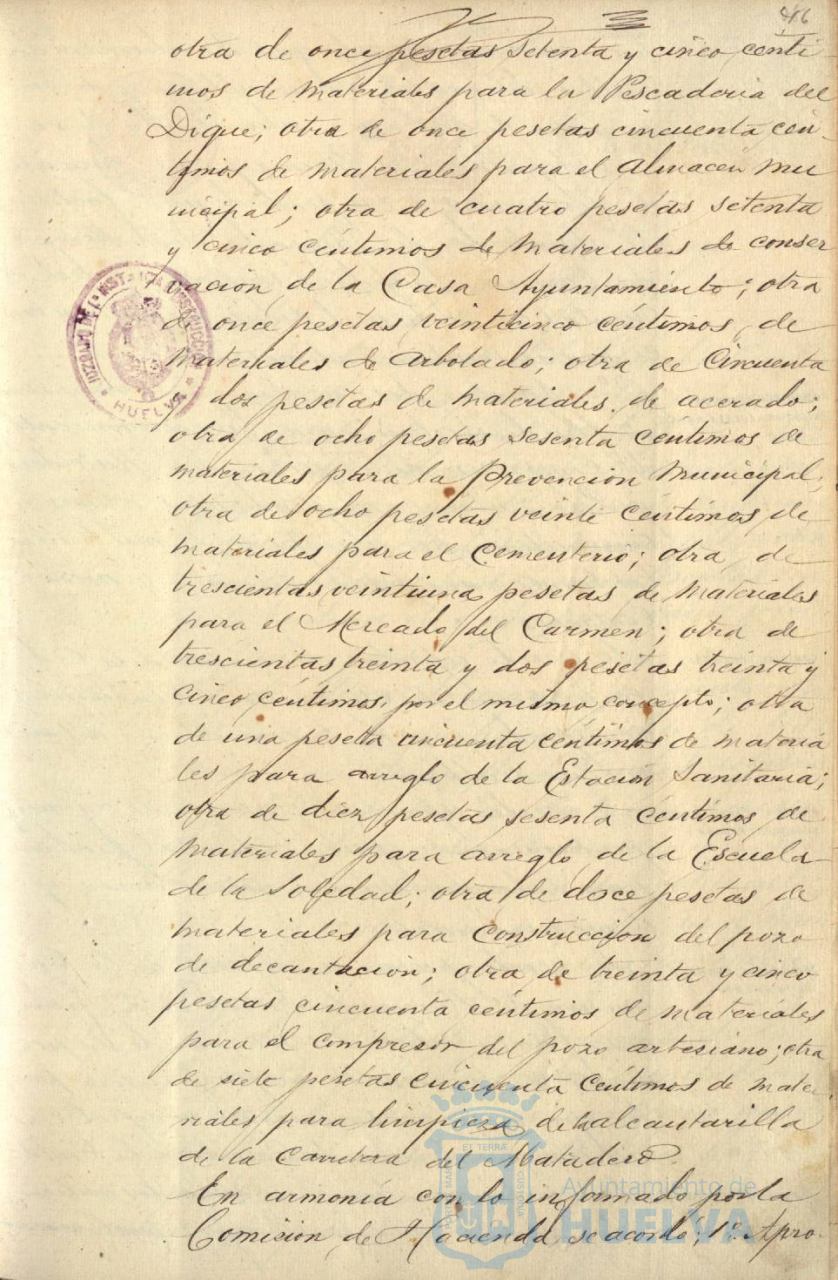 416
otra de once pesetas setenta y cinco cénti
mos de materiales para la Pescaderia del
Dique; otra de once pesetas cincuenta cén-
timos de materiales para el almacén mu
nicipal; otra de cuatro pesetas setenta
y cinco céntimos de materiales de conser
vacion de la Casa Ayuntamiento; otra
de once pesetas veinticinco céntimos de
materiales de arbolado; otra de Cincuenta
y dos pesetas de materiales de acerado;
otra de ocho pesetas sesenta céntimos de
materiales para la Prevencion Municipal;
otra de ocho pesetas veinte céntimos de
materiales para el Cementerio; otra de
trescientas veintiuna pesetas de materiales
para el Mercado del Carmen; otra de
trescientas treinta y dos pesetas treinta y
cinco céntimos por el mismo concepto; otra
de una peseta cincuenta céntimos de materia
les para arreglo de la Estación Sanitaria;
otra de diez pesetas sesenta céntimos de
materiales para arreglo de la Escuela
de la Soledad; otra de doce pesetas de
materiales para construccion del pozo
de decantacion; otra de treinta y cinco
pesetas cincuenta céntimos de materiales
para el compresor del pozo artesiano; otra
de siete pesetas cincuenta céntimos de mate
riales para limpieza de la alcantarilla
de la Carretera del Matadero.
En armonía con lo informado por la
Comision de Hacienda se acordo; 1º Apro
JUZGADO DE 1ª INSTANCIA E INSTRUCCION
HUELVA
Ayuntamiento de
HUELVA